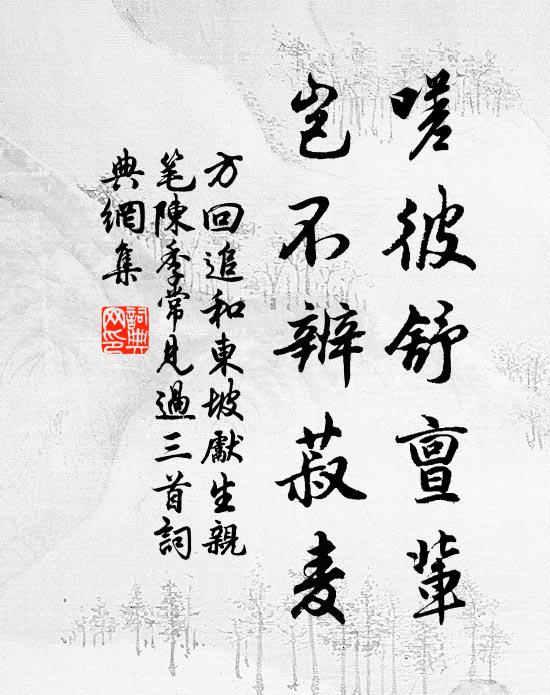 嗟彼舒亶輩
豈不辨菽麦
方回追和東坡獻生親
笔陳季常見過三首詞
典網集
詞典
网印